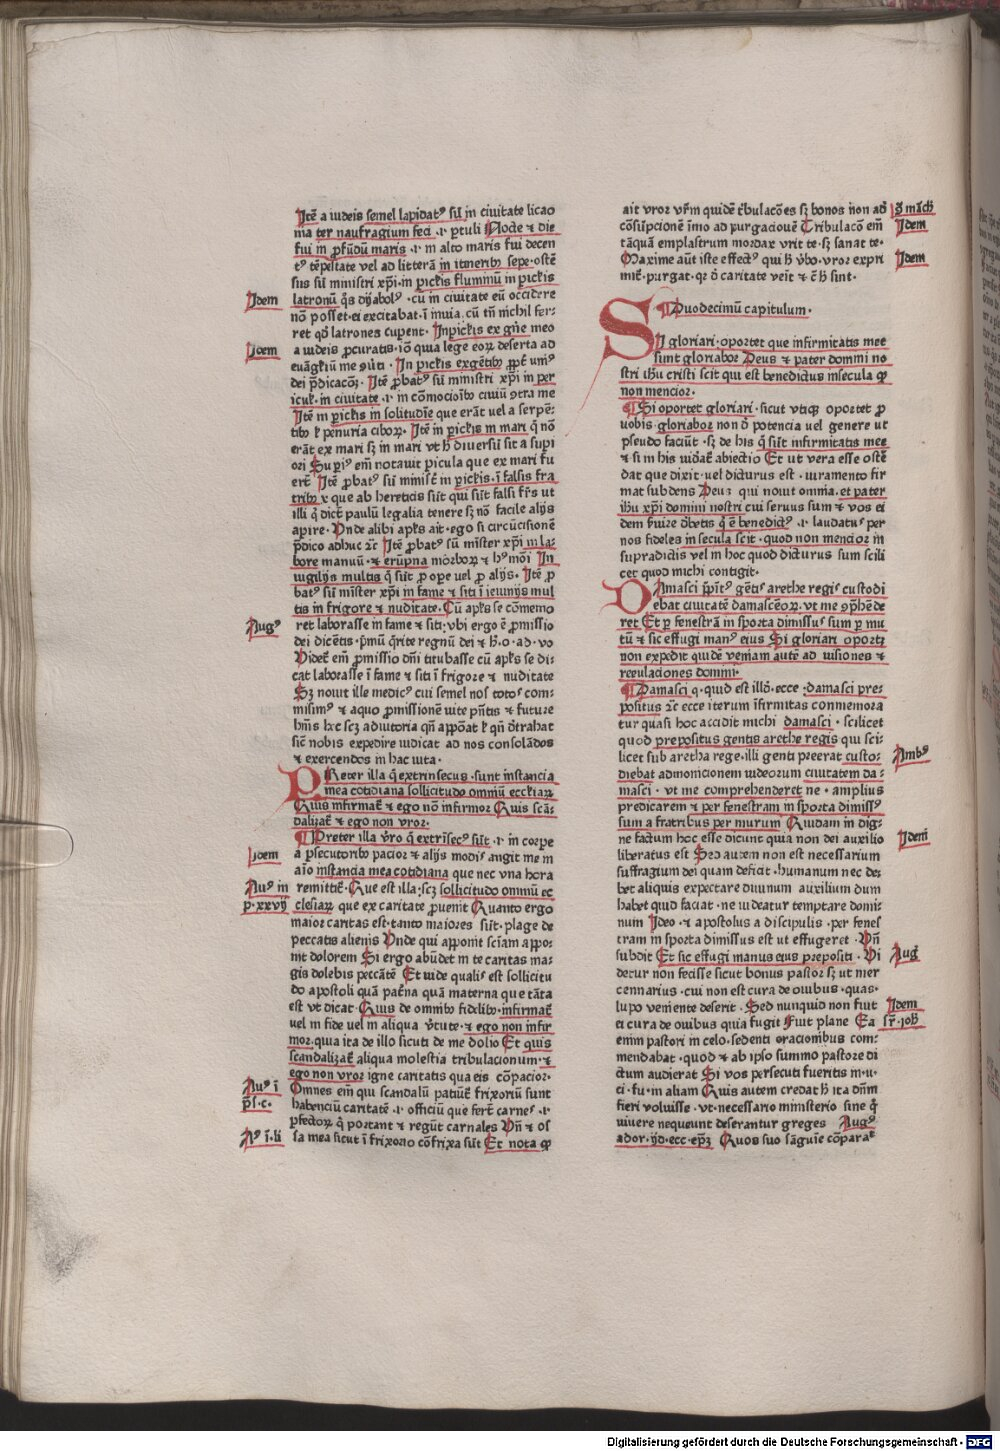 Itē a iudeis semel lapidatꝰ sū in ciuitate licao
nia ter naufragium feci .i. ꝑtuli Nocte ⁊ die
fui in ꝓfūdū maris .i. in alto maris fui decen
tꝰ tēpestate vel ad litterā in itineribꝫ sepe ostē
sus sū ministri xp̄i in ꝑiclis fluminū in ꝑiclis
latronū
nō posset ei excitabat ī in uia cū tn̄ nichil fer
ret qd latrones cupent. In ꝑiclis ex gn̄e meo
a iudeis ꝓcuratis iō quia lege eoꝝ deserta ad
In ꝑiclis
dei p̄dicacōꝫ Itē ꝓbatꝰ sū ministri xp̄i in per
icul in ciuitate .i. in cōmociōibꝫ ciuiū ꝯtra me
Itē in ꝑiclis in solitudīe que erāt vel a serpē
tibꝫ ł penuria ciboꝝ Itē in ꝑiclis in mari q̄ nō
erāt ex mari sꝫ in mari vt h diuersū sit a supi
ori
Itē ꝓbatꝰ sū ministr in ꝑiclis ī falsis fra
tribꝫ que ab hereticis sūt qui sūt falsi frēs ut
illi q̄ dict paulū legalia tenere sꝫ nō facile alijs
apire Vnde alibi apłs ait ego si circūcisionē
p̄dico adhuc ⁊c Itē ꝓbatꝰ sū mīster xp̄i in la
bore manuū ⁊ erūpna In
uigilijs multis q̄ sūt ꝓ ope vel ꝓ alijs Itē ꝓ
batꝰ sū mīster xp̄i in fame ⁊ siti ī ieiunijs mul
tis in frigore ⁊ nuditate. Cū apłs se cōmemo
ret laborasse in fame ⁊ siti vbi ergo ē ꝓmissio
dei dicētis p̄mū q̄rite regnū dei ⁊
Videt em̄ ꝓmissio dn̄i titubasse cū apłs se di
cat laborasse ī fame ⁊ siti ī frigore ⁊ nuditate
Sꝫ nouit ille medicꝰ cui semel nos totos com
misimꝰ ⁊ a quo ꝓmissionē uite p̄ntis ⁊ future
qn̄ appōat ł qn̄ dtrahat
sic nobis expedire iudicat ad nos consolādos
⁊ exercendos in hac uita.
PReter illa q̄ extrinsecus sunt instancia
mea cotidiana sollicitudo omniū eccliaꝝ
Quis infirmat ⁊ ego nō infirmor Quis scā
dalizat ⁊ ego non vror.
Preter illa vro q̄ extrīsecꝰ sūt .i. in corpe
a psecutoribꝫ pacior ⁊ alijs modis augit me in
aīo instancia mea cotidiana que nec vna hora
remittit Que est illa scꝫ sollicitudo omniū ec
clesiaꝝ que ex caritate ꝓuenit Quanto ergo
maior caritas est tanto maiores sūt plage de
peccatis alienis Vnde qui apponit sciam appo
nit dolorem Si ergo abūdet in te caritas ma
gis dolebis peccātē Et uide qualis est sollicitu
do apostoli quā pat̄na quā materna que tāta
est vt dicat Quis de omnibꝫ fidelibꝫ infirmat
vel in fide uel in aliqua vtute ⁊ ego non infir
mor quia ita de illo sicuti de me dolio Et quis
scandalizat aliqua molestia tribulacionum ⁊
ego non vror igne caritatis qua eis cōpacior
Omnes em̄ qui scandalū patiūt frixoriū sunt
habenciū caritatē .i. officiū que fert carnes .i.
pfectoꝝ q̄ portant ⁊ regūt carnales Vn̄ ⁊ os
sa mea sicut ī frixorio cōfrixa sūt Et nota ꝙ
Idem
Idem
Augꝰ
Idem
Auꝰ in
p. xxvij
Auꝰ ī
psͥ. c.
Aꝰ ī. li
ait vror vrm quidē tbulacōes sꝫ bonos non ad
cōsūpcionē īmo ad purgacionē Tribulacō em̄
tāquā emplastrum mordax vrit te sꝫ sanat te.
Maxime aūt iste effectꝰ qui h vbo vror expri
mit purgat
Duodecimū capitulum.
SI gloriari oportet que infirmitatis mee
sunt gloriabor Deus ⁊ pater domini no
stri ihū cristi scit qui est benedictus in secula ꝙ
non mencior.
Si oportet gloriari sicut vtiqꝫ oportet ꝓ
uobis gloriabor non d potencia uel genere ut
pseudo faciūt sꝫ de his q̄ sūt infirmitatis mee
⁊ si in his uidat abiectio Et ut vera esse ostē
dat que dixit uel dicturus est iuramento fir
mat subdens Deus qui nouit omnia et pater
ihū xp̄i domini nostri cui seruus sum ⁊ vos ei
dem ſuire dbetis q̄ ē benedictꝰ .i. laudatus per
nos fideles in secula scit quod non mencior in
supradictis vel in hoc quod dicturus sum scili
cet quod michi contigit.
DAmasci p̄ōitꝰ gētis arethe regis custodi
ebat ciuitatē damascēoꝝ vt me ꝯphēde
ret Et ꝑ fenestrā in sporta dimissus sum ꝑ mu
rū ⁊ sic effugi manꝰ eius Si gloriari oportꝫ
non expedit quidē veniam autē ad uisiones ⁊
reuelaciones domini
Damasci q. quid est illd. ecce damasci pre
positus ⁊c ecce iterum īfirmitas conmemora
tur quasi hoc accidit michi damasci scilicet
quod prepositus gentis arethe regis qui sci
licet sub aretha rege illi genti preerat custo
diebat admonicionem iudeorum ciuitatem da
masci vt me comprehenderet ne amplius
predicarem ⁊ per fenestram in sporta dimissꝰ
sum a fratribus per murum Quidam in dig
ne factum hoc esse dicunt quia non dei auxilio
liberatus est Sed autem non est necessarium
suffragium dei quam deficit humanum nec de
bet aliquis expectare diuinum auxilium dum
habet quid faciat ne uideatur temptare domi
num Ideo ⁊ apostolus a discipulis per fenes
tram in sporta dimissus est ut effugeret Vn̄
subdit Et sic effugi manus eius prepositi Vi
detur non fecisse sicut bonus pastor sꝫ ut mer
cennarius cui non est cura de ouibus quas
lupo veniente deserit Sed nunquid non fuit
ei cura de ouibus quia fugit Fuit plane Ea
enim pastori in celo sedenti oracionibus com
mendabat quod ⁊ ab ipso summo pastore di
ctum audierat Si vos persecuti fueritis in u
ci fu in aliam Quis autem credat h ita dn̄m
fieri voluisse vt necessario ministerio sine q̄
uiuere nequeunt deserantur greges Augꝰ
ador. Quos suo sāguīe cōparat
Idem
Idem
Ambꝰ
Idem
Augꝰ
Idem
sr. ioh
Digitalisierung gefördert durch die Deutsche Forschungsgemeinschaft - DFG